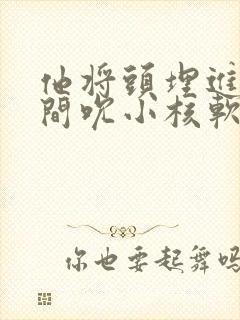 他將頭埋進
間吮小核軟
你也要起舞嗎